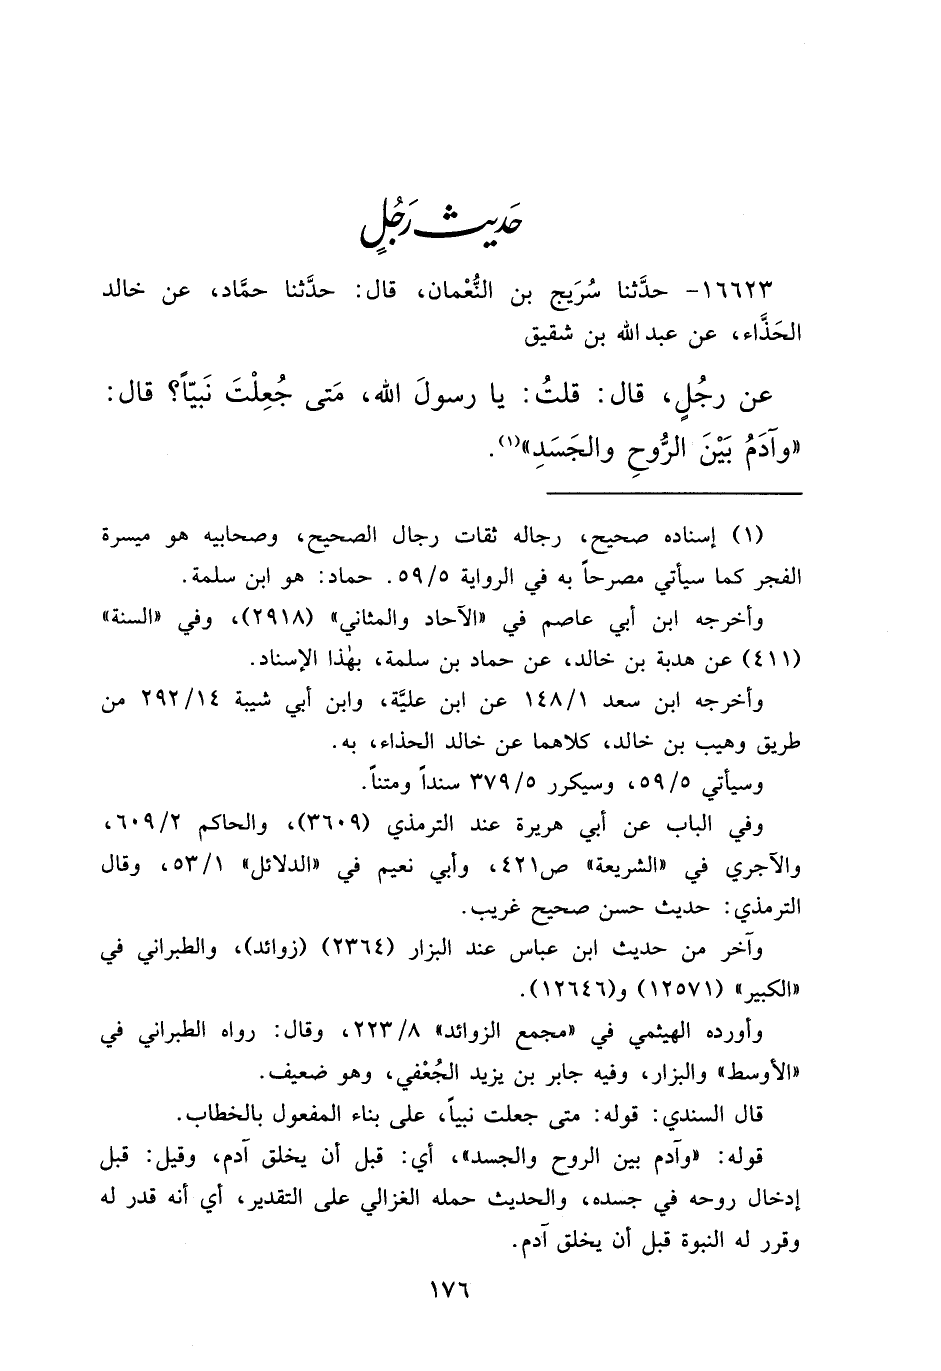 حَديث رَجُلٍ
١٦٦٢٣- حدَّثنا سُرَيج بن النُّعْمان، قال: حدَّثنا حمَّاد، عن خالد
الحَذَّاء، عن عبد الله بن شقيق
عن رجُلٍ، قال: قلتُ: يا رسولَ الله، مَتى جُعِلْتَ نَبيّاً؟ قال:
«وآدَمُ بَيْنَ الرُّوحِ والجَسَدِ»(١).
(١) إسناده صحيح، رجاله ثقات رجال الصحيح، وصحابيه هو ميسرة
الفجر كما سيأتي مصرحاً به في الرواية ٥٩/٥. حماد: هو ابن سلمة.
وأخرجه ابن أبي عاصم في «الآحاد والمثاني» (٢٩١٨)، وفي «السنة»
(٤١١) عن هدبة بن خالد، عن حماد بن سلمة، بهٰذا الإسناد.
وأخرجه ابن سعد ١٤٨/١ عن ابن عليَّة، وابن أبي شيبة ٢٩٢/١٤ من
طريق وهيب بن خالد، كلاهما عن خالد الحذاء، به.
وسيأتي ٥٩/٥، وسيكرر ٣٧٩/٥ سنداً ومتناً.
وفي الباب عن أبي هريرة عند الترمذي (٣٦٠٩)، والحاكم ٦٠٩/٢،
والآجري في «الشريعة» ص٤٢١، وأبي نعيم في «الدلائل» ٥٣/١، وقال
الترمذي: حديث حسن صحيح غريب.
وآخر من حديث ابن عباس عند البزار (٢٣٦٤) (زوائد)، والطبراني في
«الكبير» (١٢٥٧١) و(١٢٦٤٦).
وأورده الهيثمي في «مجمع الزوائد» ٢٢٣/٨، وقال: رواه الطبراني في
«الأوسط» والبزار، وفيه جابر بن يزيد الجُعْفي، وهو ضعيف.
قال السندي: قوله: متى جعلت نبياً، على بناء المفعول بالخطاب.
قوله: «وآدم بين الروح والجسد»، أي: قبل أن يخلق آدم، وقيل: قبل
إدخال روحه في جسده، والحديث حمله الغزالي على التقدير، أي أنه قدر له
وقرر له النبوة قبل أن يخلق آدم.
١٧٦